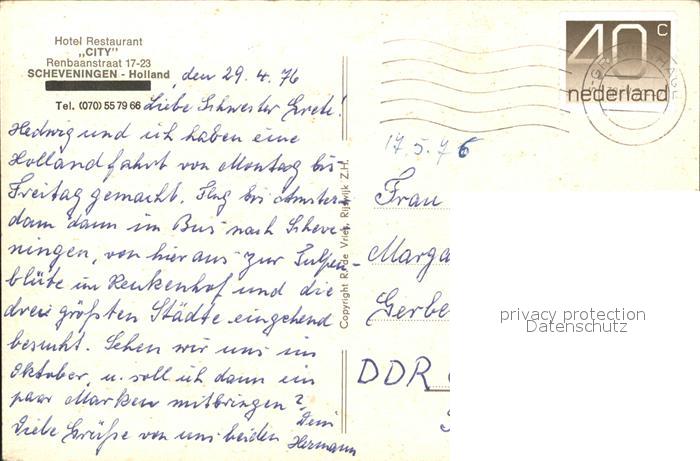 Hotel Restaurant
„CITY"
Renbaanstraat 17-23
SCHEVENINGEN - Holland
Tel. (070) 55 79 66
, den 29. 4. 76
Liebe Schwester Grete!
Hedwig und ich haben eine
Hollandfahrt von Montag bis
Freitag gemacht. Flug bis Amster-
dam dann im Bus nach Scheve-
ningen, von hier aus zur Tulpen-
blüte im Keukenhof und die
drei größten Städte eingehend
besucht. Sehen wir uns im
Oktober, u. soll ich dann ein
paar Marken mitbringen?
Liebe Grüße von uns beiden Dein
Hermann
Copyright R. de Vries, Rijswijk Z.H.
40 c
nederland
17.5.76
Frau
Marga
Gerbe
DDR
privacy protection
Datenschutz